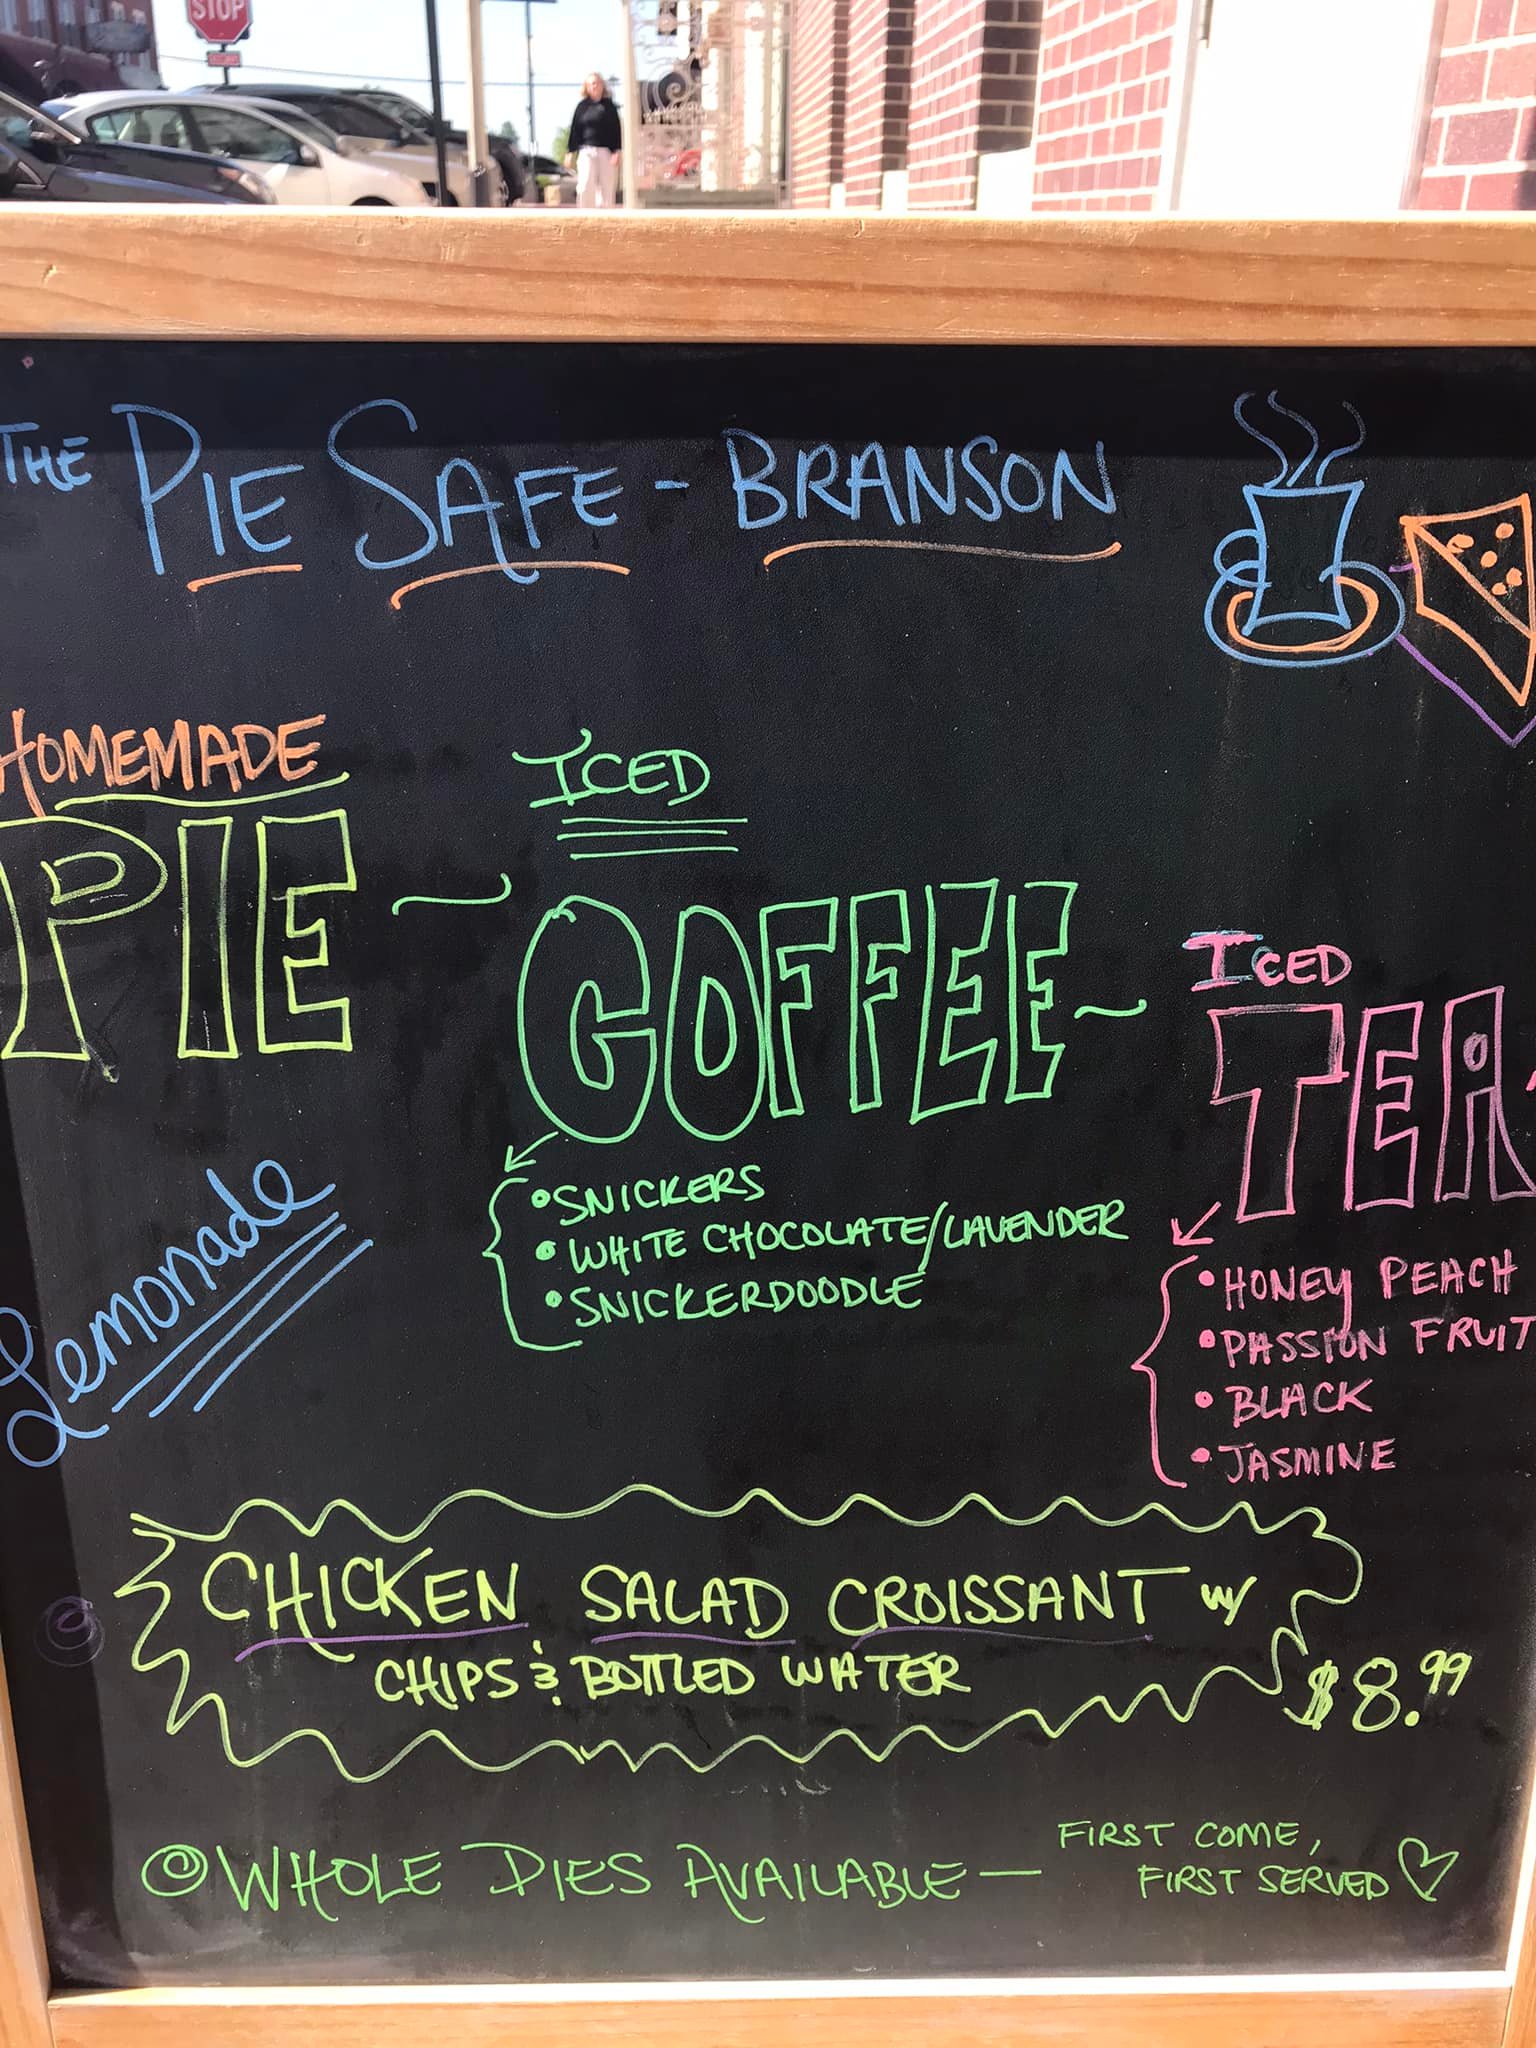 STOP
THE PIE SAFE - BRANSON
HOMEMADE
PIE ~
ICED
COFFEE ~
• SNICKERS
• WHITE CHOCOLATE/LAVENDER
• SNICKERDOODLE
ICED
TEA
• HONEY PEACH
• PASSION FRUIT
• BLACK
• JASMINE
Lemonade
CHICKEN SALAD CROISSANT w/
CHIPS & BOTTLED WATER
$8.99
WHOLE PIES AVAILABLE — FIRST COME,
FIRST SERVED